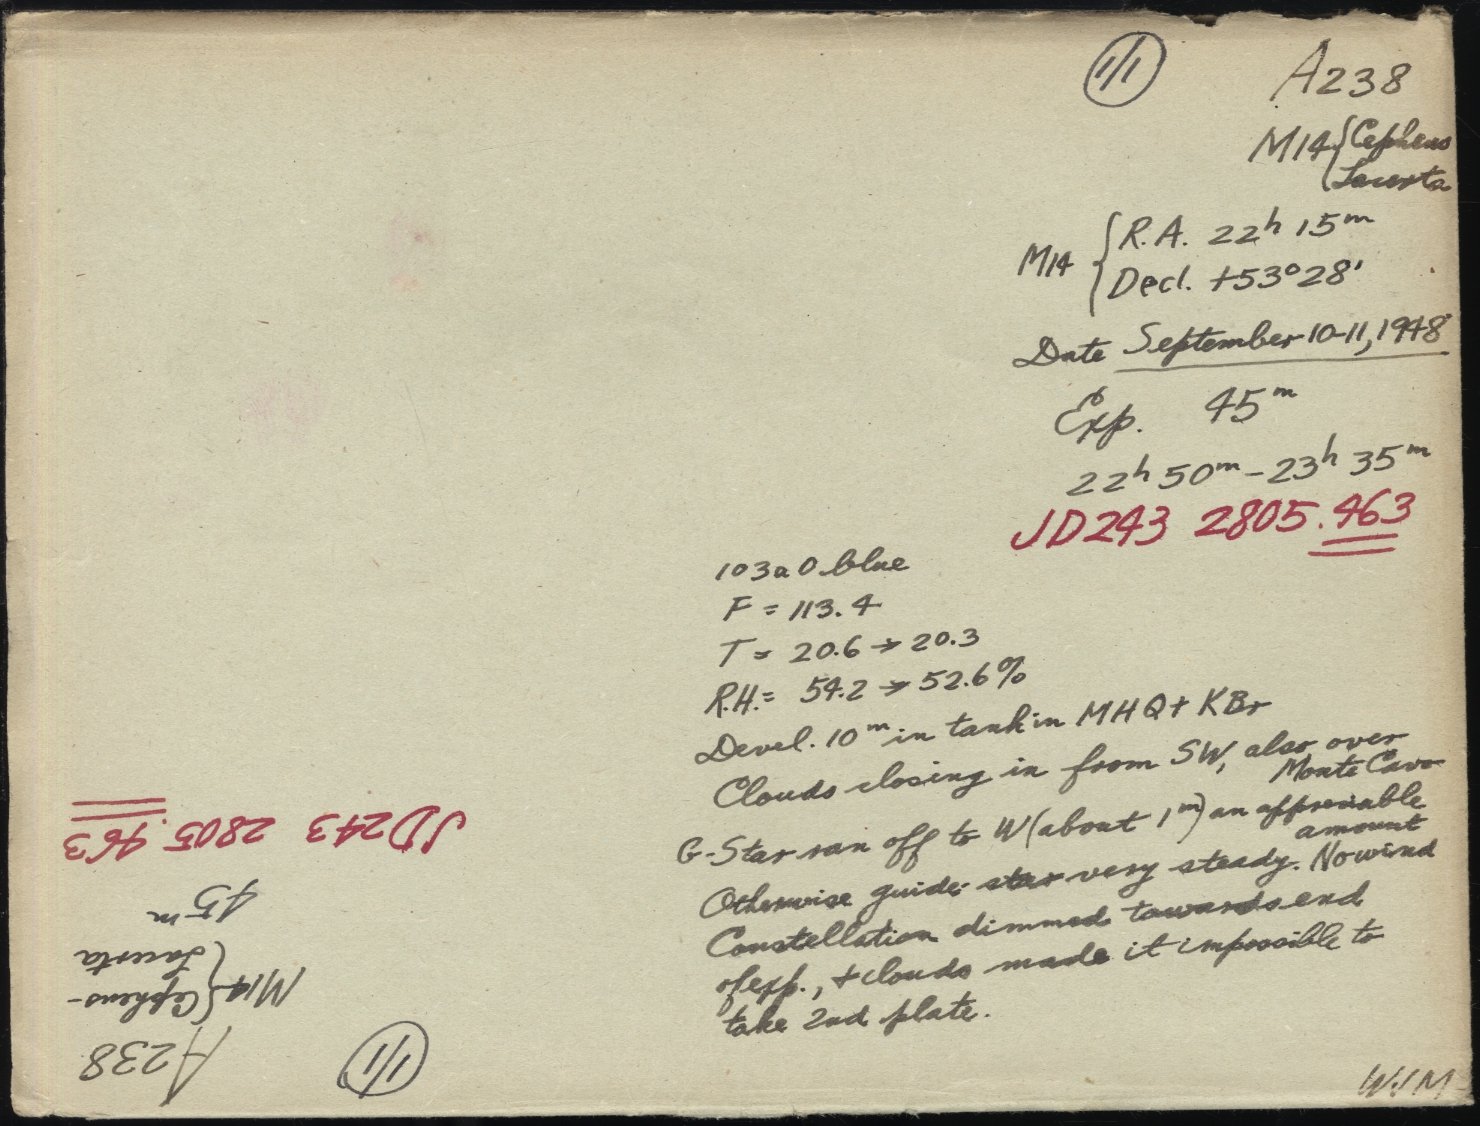 1/1
A238
M14 { Cepheus
Lacerta
M14 { R.A. 22h 15m
Decl. +53°28'
Date September 10-11, 1948
Exp. 45m
22h 50m - 23h 35m
JD243 2805.463
103a O blue
F = 113.4
T = 20.6 → 20.3
R.H. = 54.2 → 52.6%
Devel. 10m in tank in MHQ + KBr
Clouds closing in from SW, also over
Monte Cavo
G-Star ran off to W (about 1m) an appreciable
amount
Otherwise guide-star very steady. No wind
Constellation dimmed towards end
of exp., + clouds made it impossible to
take 2nd plate.
WJM
1/1
A238
M14 { Cepheus-
Lacerta
45m
JD243 2805.463